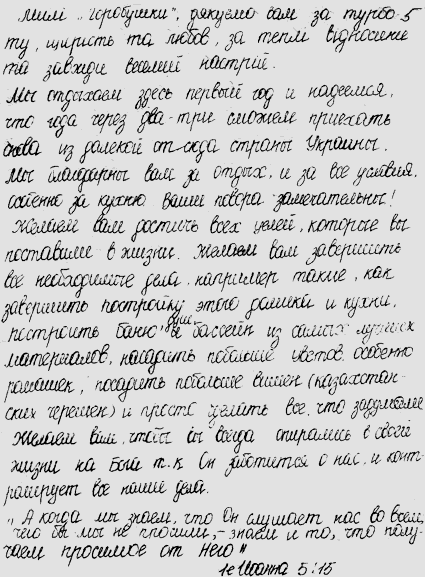 Милі "горобушки", дякуємо вам за турбо-
ту, щирість та любов, за теплі відносини
та завжди веселий настрій.
Мы отдыхаем здесь первый год и надеемся,
что года через два-три сможем приехать
снова из далекой отсюда страны Украины.
Мы благодарны вам за отдых, и за все условия,
особенно за кухню ваши повора замечательны!
Желаем вам достичь всех целей, которые вы
поставили в жизни. Желаем вам завершить
все необходимые дела, например такие, как
завершить постройку этого домика и кухни,
построить баню, душ и бассейн из самых лучших
материалов, насадить побольше цветов особенно
ромашек, посадить побольше вишен (казахстан-
ских черешен) и просто сделать все, что задумали
Желаем вам, чтобы вы всегда опирались в своей
жизни на Бога т.к Он заботится о нас, и конт-
ролирует все наши дела.
"А когда мы знаем, что Он слушает нас во всем,
чего бы мы не просили, - знаем и то, что полу-
чаем просимое от Него"
1е Иоанна 5:15